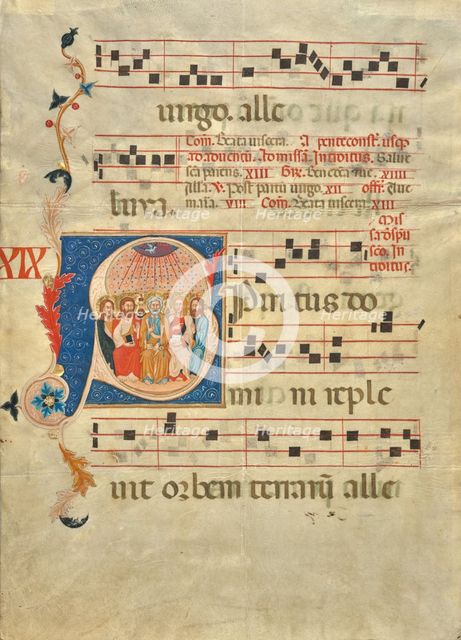 uirgo. alle
Com. Beata uiscera. A pentecosten. usq3
ad aduentu. Ad missa. Introitus. Salue
sca parens. XIII Gr. Benedicta. &. tue. XIIII
Alla. V. Post partu uirgo. XII offr. Aue
maria. VIII Com. Beata uiscera. XIII
luya.
Mis
sa de spu
sco. In
troitus.
XIX
Spiritus do
mini reple
uit orbem terrarum alle
Heritage